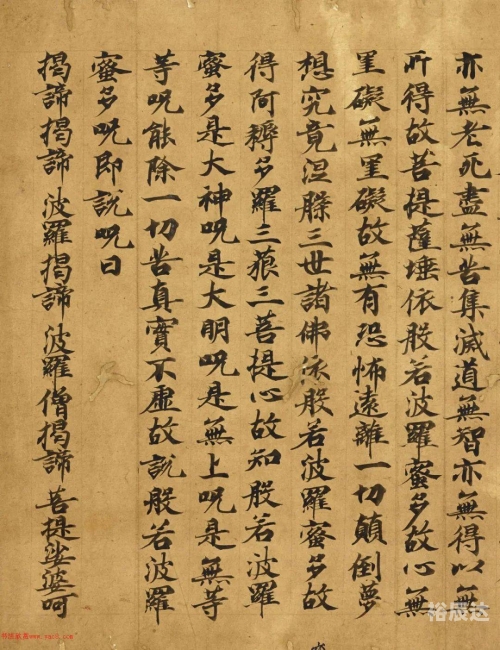 亦無老死盡無苦集滅道無智亦無得以無
所得故菩提薩埵依般若波羅蜜多故心無
罣礙無罣礙故無有恐怖遠離一切顛倒夢
想究竟涅槃三世諸佛依般若波羅蜜多故
得阿耨多羅三藐三菩提心故知般若波羅
蜜多是大神呪是大明呪是無上呪是無等
等呪能除一切苦真實不虛故說般若波羅
蜜多呪即說呪曰
揭諦揭諦 波羅揭諦 波羅僧揭諦 菩提娑婆呵
裕宸达